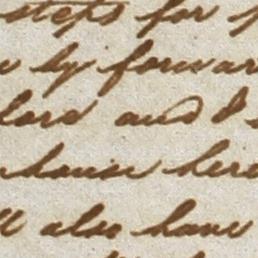 steps for
by forwar
lord and I
house here
also have